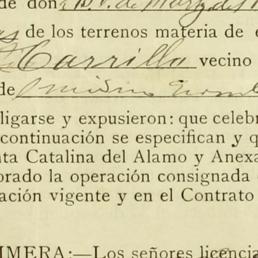 de don
de los terrenos materia de e
Carrillo vecino
de
ligarse y expusieron: que celebr
continuación se especifican y q
ta Catalina del Alamo y Anexa
orado la operación consignada
ación vigente y en el Contrato
IMERA:—Los señores licencia